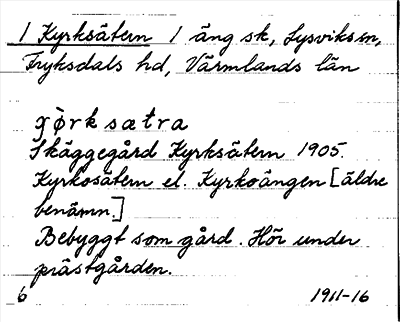 1 Kyrksätern 1 äng sk, Lysviks sn,
Fryksdals hd, Värmlands län
gòrksætra
Skäggegård Kyrksätern 1905.
Kyrkosätern el. Kyrkoängen [äldre
benämn.]
Bebyggt som gård. Hör under
prästgården.
6 1911-16